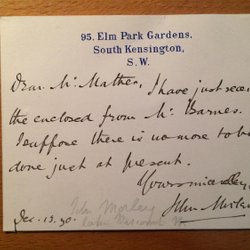 95, Elm Park Gardens,
South Kensington,
S.W.
Dear Mr Mather, I have just
the enclosed from Mr Barnes.
I suppose there is no more to be
done just at present.
Yours sincerely
John
Dec. 13. 90.
John Morley